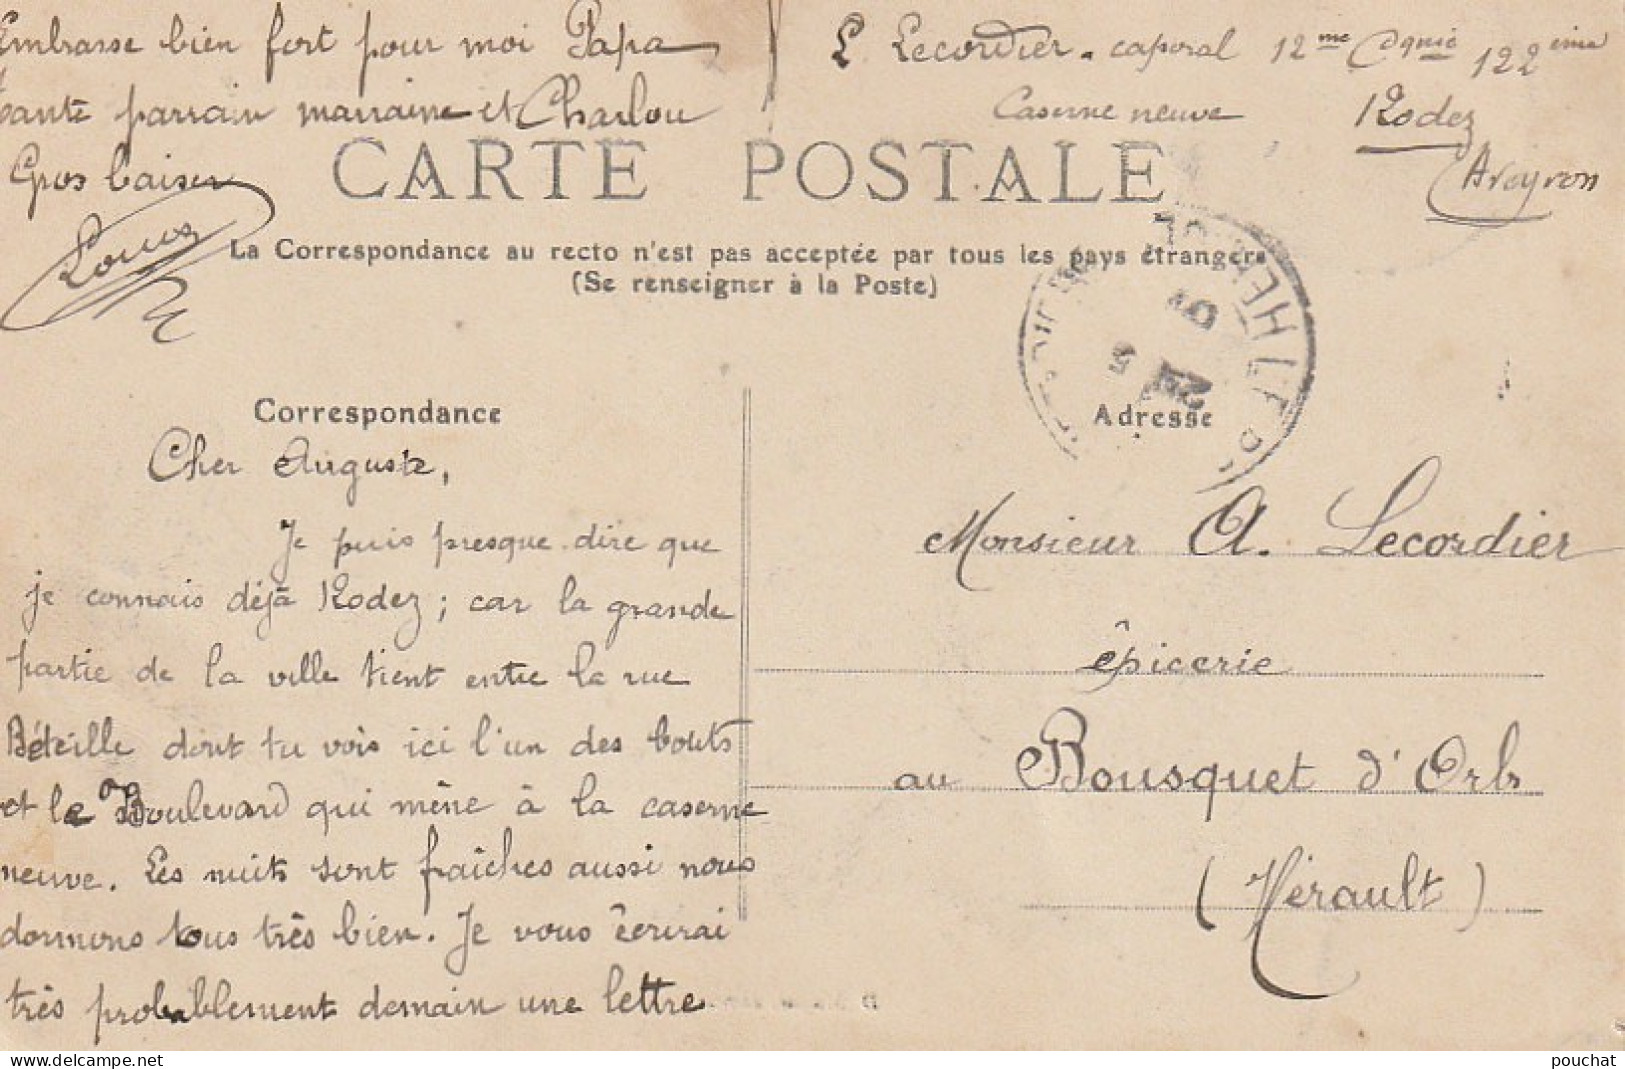 Embrasse bien fort pour moi Papa
tante parrain marraine et Charlou
Gros baiser
Louis
L. Lecordier. caporal 12me Cgnie 122eime
Caserne neuve Rodez
Aveyron
CARTE POSTALE
La Correspondance au recto n'est pas acceptée par tous les pays étrangers
(Se renseigner à la Poste)
Correspondance
Cher Auguste,
Je puis presque dire que
je connais déjà Rodez ; car la grande
partie de la ville tient entre la rue
Béteille dont tu vois ici l'un des bouts
et le Boulevard qui mène à la caserne
neuve. Les nuits sont fraîches aussi nous
dormons tous très bien. Je vous écrirai
très probablement demain une lettre
Adresse
Monsieur A. Lecordier
épicerie
au Bousquet d'Orb
(Hérault)
pouchat
www.delcampe.net